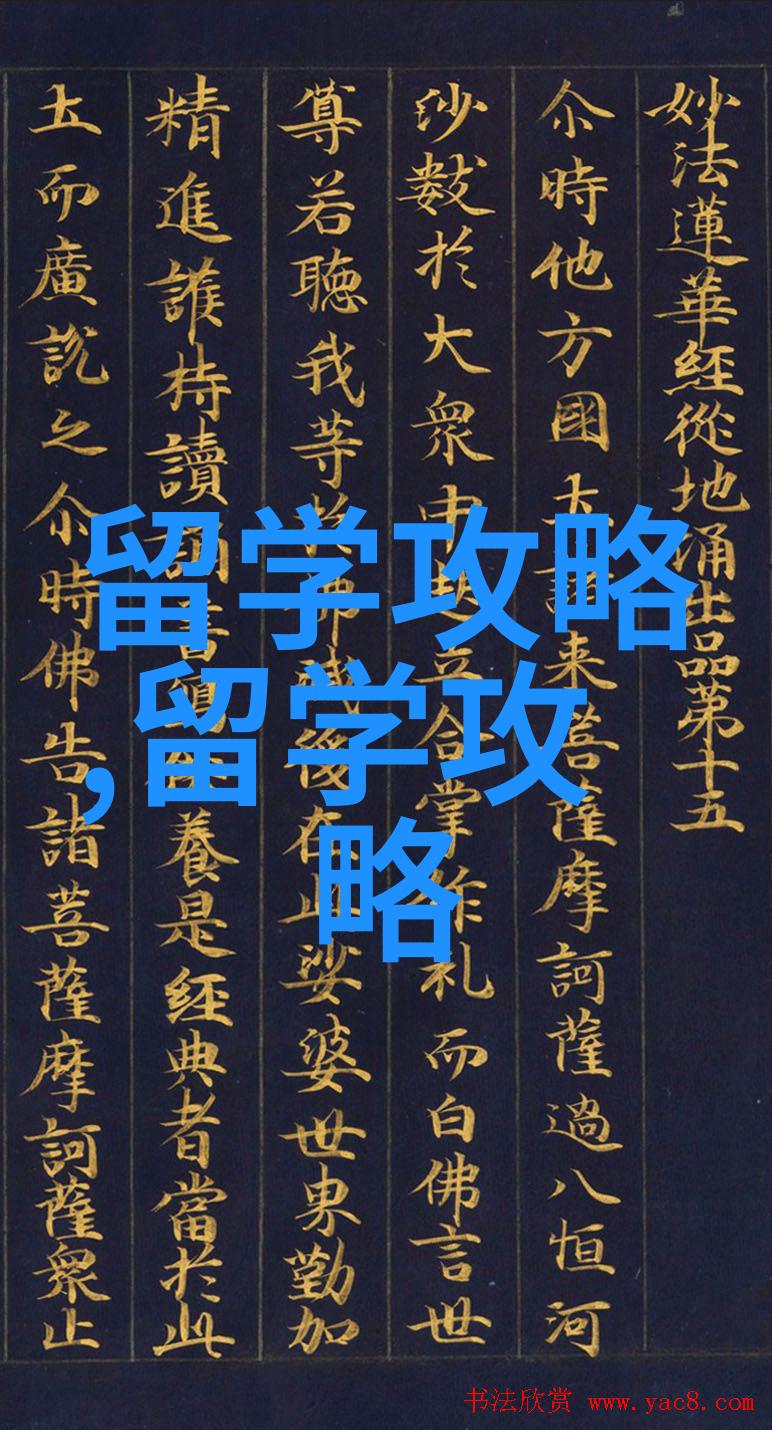 妙法蓮華經從地涌出品第十五
尒時他方國土諸来菩薩摩訶薩過八恒河
沙數於大衆中起立合掌作礼而白佛言世
尊若聽我等於佛滅後在此娑婆世界勤加
精進護持讀誦書寫供養是經典者當於此
土而廣說之尒時佛告諸菩薩摩訶薩衆止
留学攻略
,留学攻
略
书法欣赏 www.yac8.com